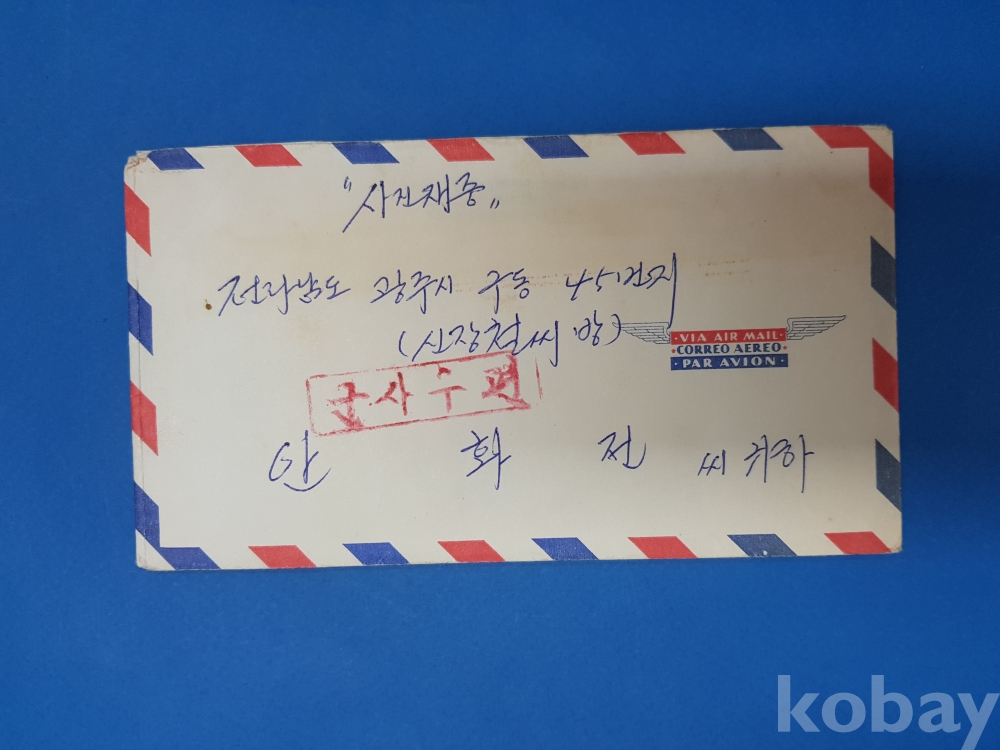 "사진재중"
전라남도 광주시 구동 45번지
(신장철씨 방)
VIA AIR MAIL
CORREO AEREO
PAR AVION
군사우편
안 화 전 씨 귀하
kobay